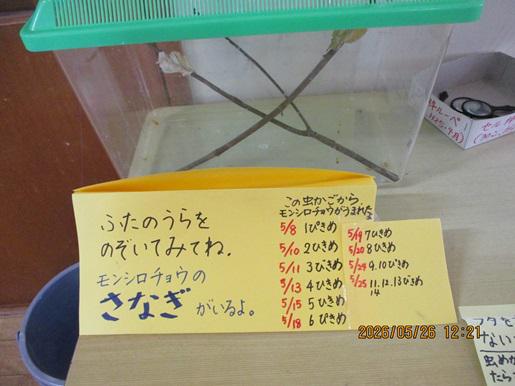 ふたのうらを
のぞいてみてね。
モンシロチョウの
さなぎ がいるよ。
この虫かごから、
モンシロチョウがうまれたよ
5/8 1ぴきめ
5/10 2ひきめ
5/11 3びきめ
5/13 4ひきめ
5/15 5ひきめ
5/18 6ぴきめ
5/19 7ひきめ
5/20 8ひきめ
5/24 9.10ぴきめ
5/25 11.12.13びきめ
14
2026/05/26 12:21
ルーペ!
セル
フタを
ない
虫めが
たら